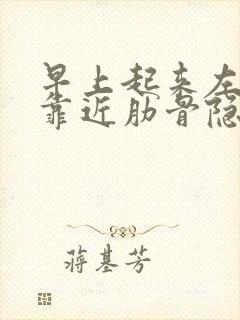 早上起来左
靠近肋骨隐
蒋基芳